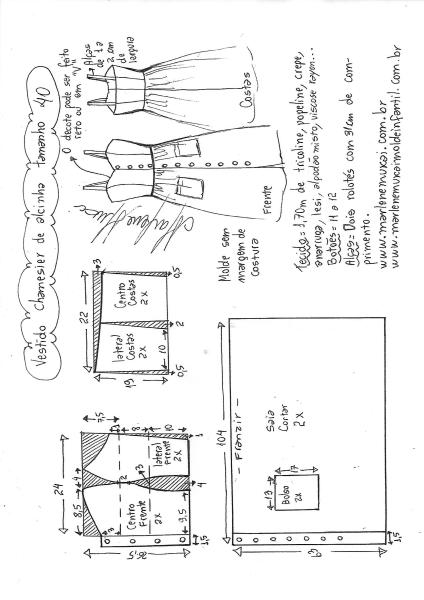 Vestido Chamesier de alcinha tamanho 40
O decote pode ser feito
reto ou em "V"
Alças
de 1 a
2 cm
de
largura
Costas
Frente
Molde sem
margem de
costura
Tecido = 1,70m de tricoline, popeline, crepe,
lesi, algodão misto, viscose rayon...
Botões = 11 a 12
Alças = Dois rolotês com 31cm de com-
primento.
www.marlenemuxai.com.br
www.marlenemuxaimoldeinfantil.com.br
22
3
Centro
Costas
2x
lateral
Costas
2x
19
10
0,5
2
0,5
24
8,5
4
7,5
3
2
3
8
10
Centro
Frente
2x
lateral
Frente
2x
9,5
4
1
1,5
104
- Franzir -
Saia
Cortar
2x
13
17
Bolso
2x
63
1,5